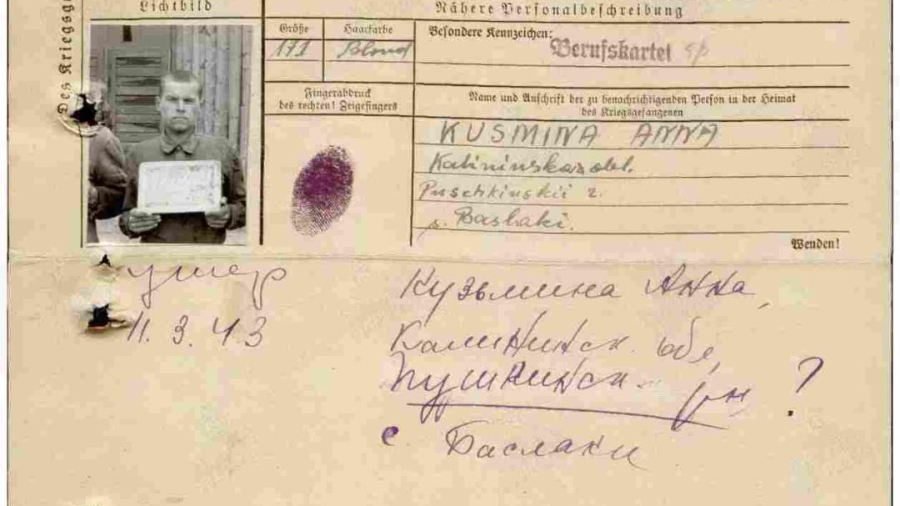 Des Kriegsg
Lichtbild
Nähere Personalbeschreibung
Größe
Haarfarbe
Besondere Kennzeichen:
171
Blond
Berufskartei
Fingerabdruck
des rechten! Zeigefingers
Name und Anschrift der zu benachrichtigenden Person in der Heimat
des Kriegsgefangenen
KUSMINA ANNA
Kalininskaz obl.
Puschkinskii r.
s. Baslaki.
Wenden!
умер
11.3.43
Кузьмина Анна,
Калининск. обл,
Пушкинск. рн ?
с Баслаки